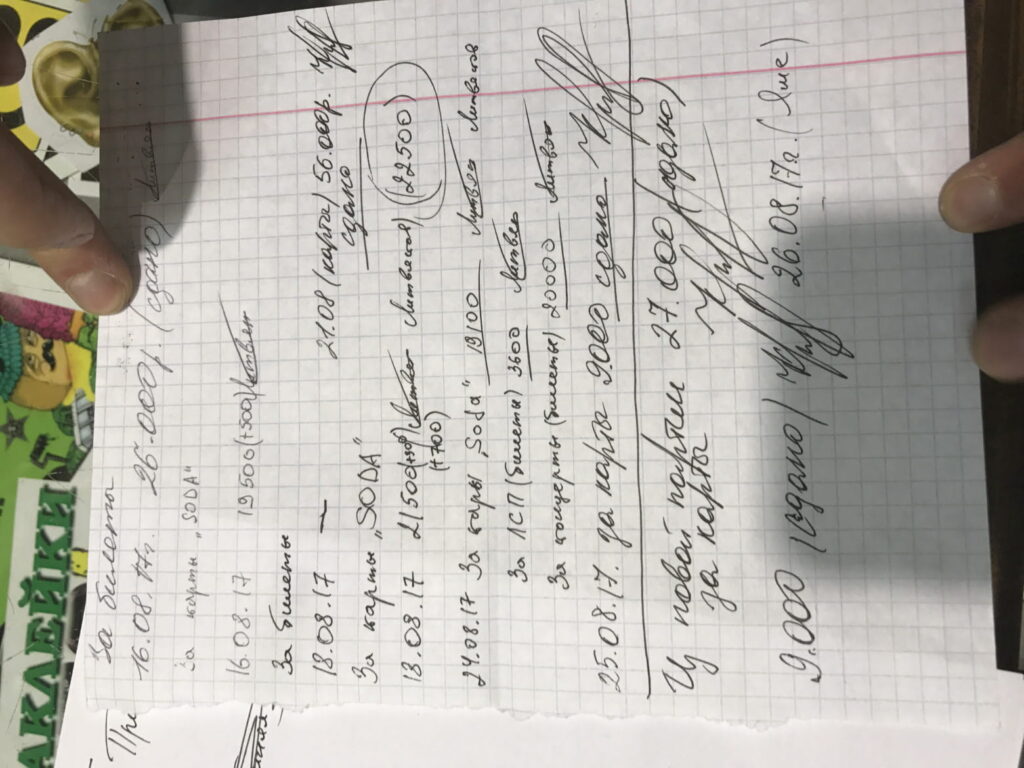 АКЛЕЙКИ
При
За билеты
16.08.17г. 26.000р. (сдано)
За карты "SODA"
16.08.17 19500(+500)
За билеты
18.08.17 — 21.08 (карта) 56.000р.
сдано
За карты „SODA“
18.08.17 21500 Литвинов (22500)
(+700)
24.08.17 За карты „Soda“ 19100
За ЛСП (билеты) 3600
За концерты (билеты) 20000
25.08.17. за карты 9000 сдано
Ц новой партии 27.000 (сдано)
за карты
9.000 (сдано) 26.08.17г. (Яне)